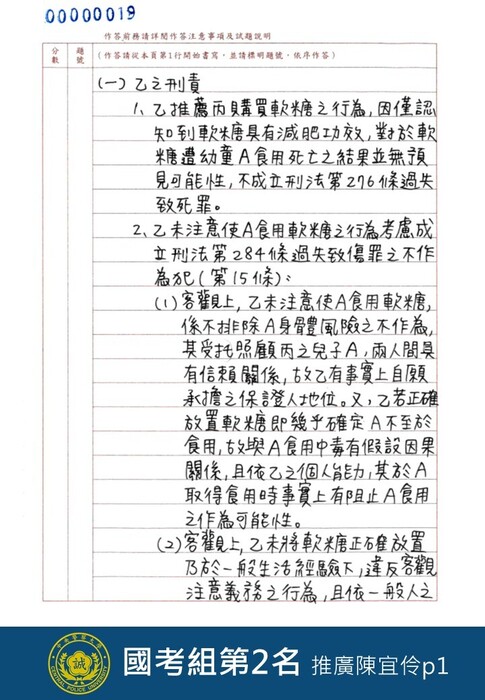 00000019
作答前務請詳閱作答注意事項及試題說明
分數
題號
(作答請從本頁第1行開始書寫，並請標明題號，依序作答)
(一)乙之刑責
1、乙推薦丙購買軟糖之行為,因僅認
知到軟糖具有減肥功效,對於軟
糖遭幼童A食用死亡之結果並無預
見可能性,不成立刑法第276條過失
致死罪。
2、乙未注意使A食用軟糖之行為考慮成
立刑法第284條過失致傷罪之不作
為犯(第15條):
(1)客觀上,乙未注意使A食用軟糖,
係不排除A身體風險之不作為,
其受托照顧丙之兒子A,兩人間具
有信賴關係,故乙有事實上自願
承擔之保證人地位。又,乙若正確
放置軟糖即幾乎確定A不至於
食用,故與A食用中毒有假設因果
關係,且依乙之個人能力,其於A
取得食用時事實上有阻止A食用
之作為可能性。
(2)客觀上,乙未將軟糖正確放置
乃於一般生活經驗下,違反客觀
注意義務之行為,且依一般人之
誠
CENTRAL POLICE UNIVERSITY
國考組第2名 推廣陳宜伶p1